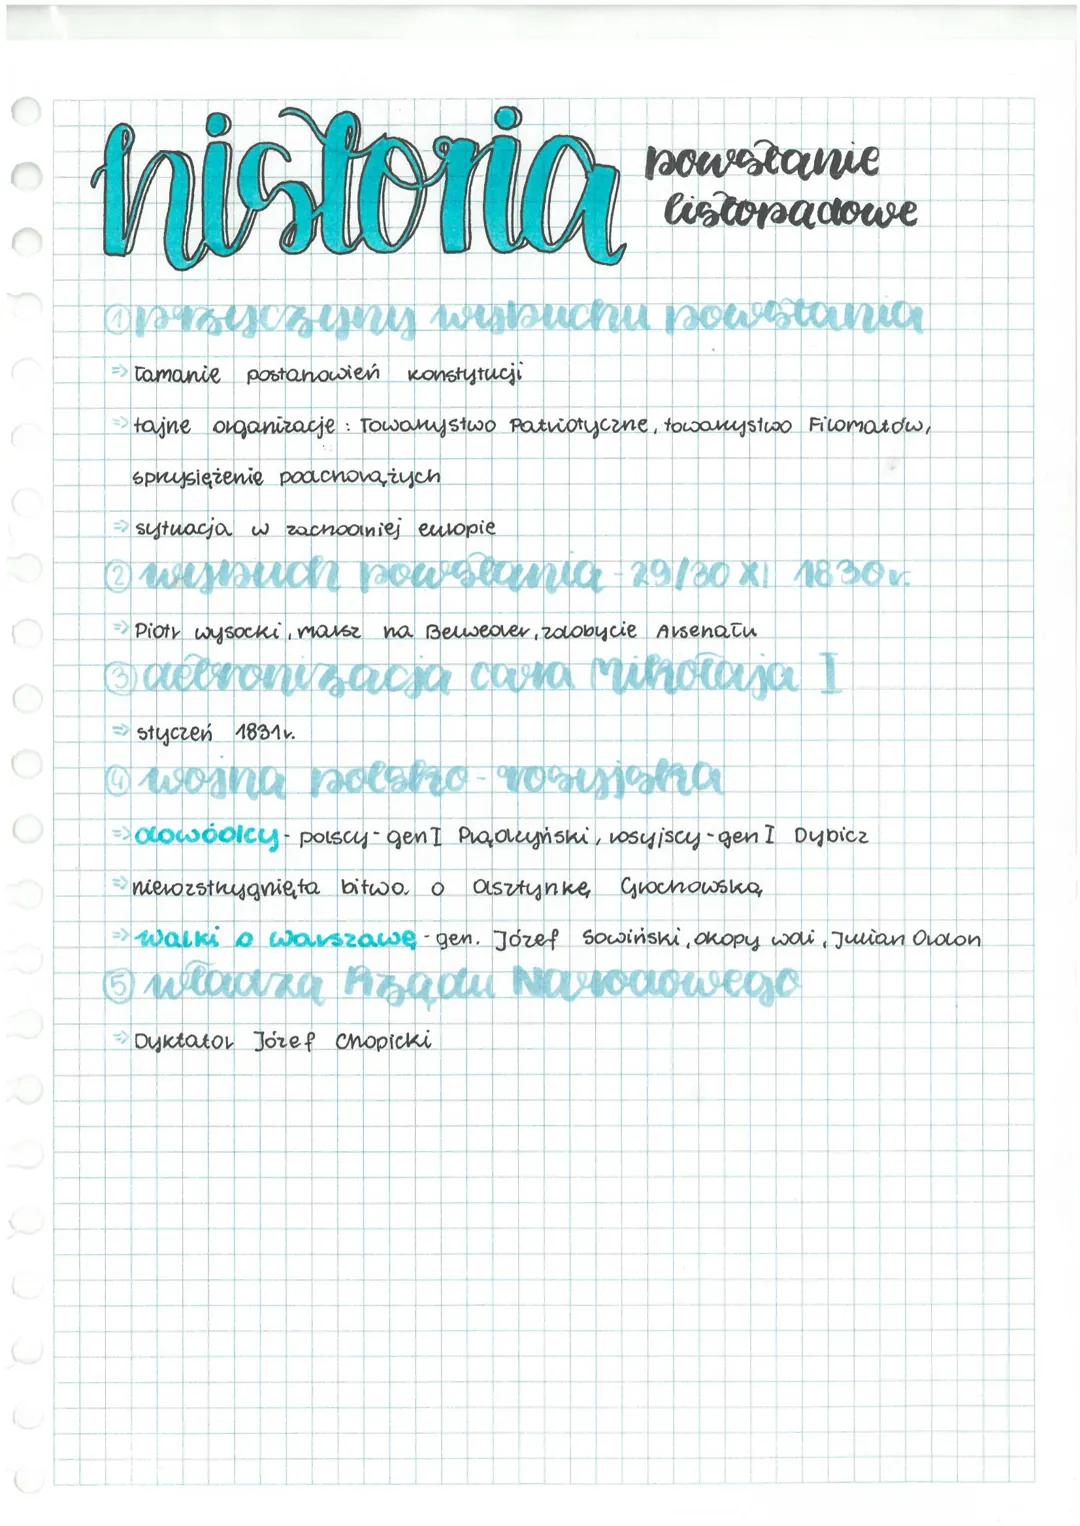 historia
powstanie
listopadowe
① przyczyny wybuchu powstania
⇒ łamanie postanowień konstytucji
⇒ tajne organizacje : Towarzystwo Patriotyczne, towarzystwo Filomatów,
sprzysiężenie podchorążych
⇒ sytuacja w zachodniej europie
② wybuch powstania - 29/30 XI 1830r.
⇒ Piotr wysocki, marsz na Belweder, zdobycie Arsenału
③ detronizacja cara Mikołaja I
⇒ styczeń 1831r.
④ wojna polsko - rosyjska
⇒ dowódcy - polscy - gen I Prądzyński, rosyjscy - gen I Dybicz
⇒ nierozstrzygnięta bitwa o olsztynkę Grochowską
⇒ walki o warszawę - gen. Józef Sowiński, okopy woli, Julian Ordon
⑤ władza Rządu Narodowego
⇒ Dyktator Józef Chopicki